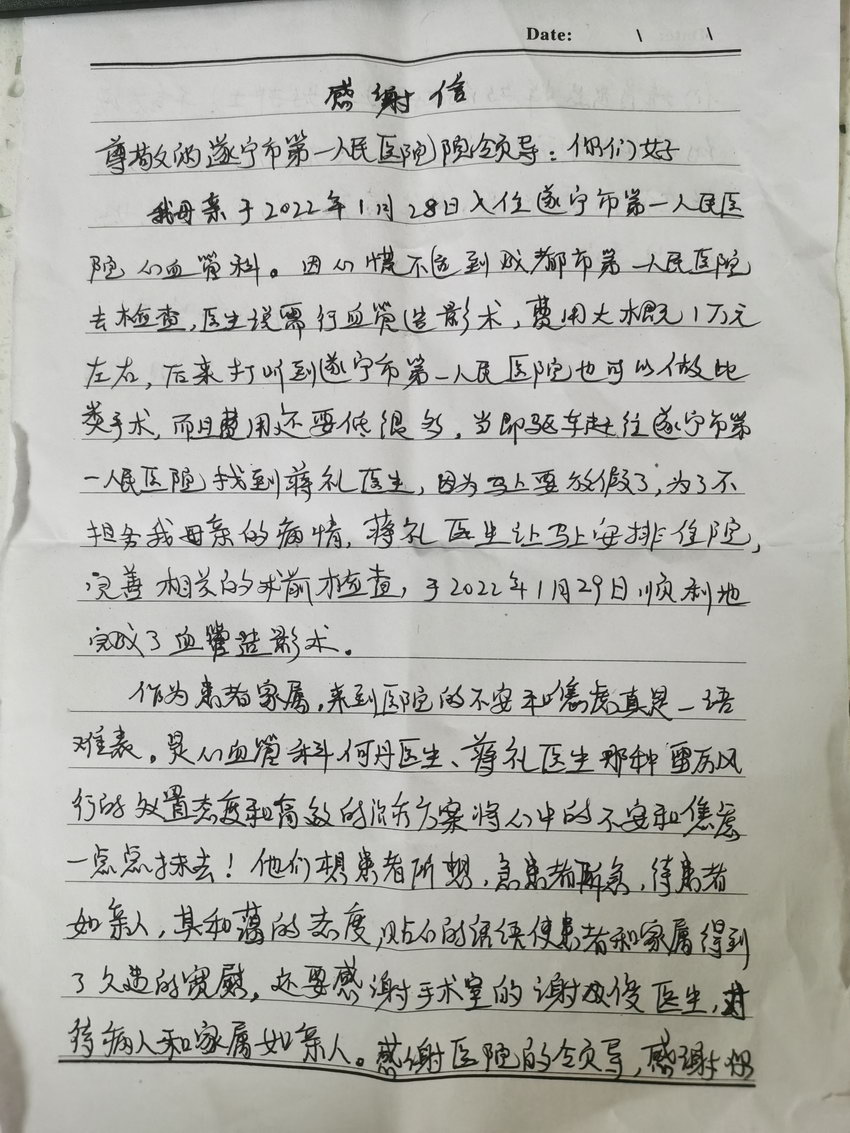 Date: \ \
感谢信
尊敬的遂宁市第一人民医院院领导：你们好
我母亲于2022年1月28日入住遂宁市第一人民医
院心血管科。因心慌不适到成都市第一人民医院
去检查，医生说需行血管造影术，费用大概1万元
左右，后来打听到遂宁市第一人民医院也可以做此
类手术，而且费用还要低很多，当即驱车赶往遂宁市第
一人民医院找到蒋礼医生，因为马上要放假了，为了不
担务我母亲的病情，蒋礼医生让马上安排住院，
完善相关的术前检查，于2022年1月29日顺利地
完成了血管造影术。
作为患者家属，来到医院的不安和焦虑真是一语
难表。是心血管科何丹医生、蒋礼医生那种雷厉风
行的处置态度和高效的治疗方案将心中的不安和焦虑
一点点抹去！他们想患者所想，急患者所急，待患者
如亲人，其和蔼的态度，贴心的话语使患者和家属得到
了久违的宽慰，还要感谢手术室的谢俊医生，对
待病人和家属如亲人。感谢医院的领导，感谢你